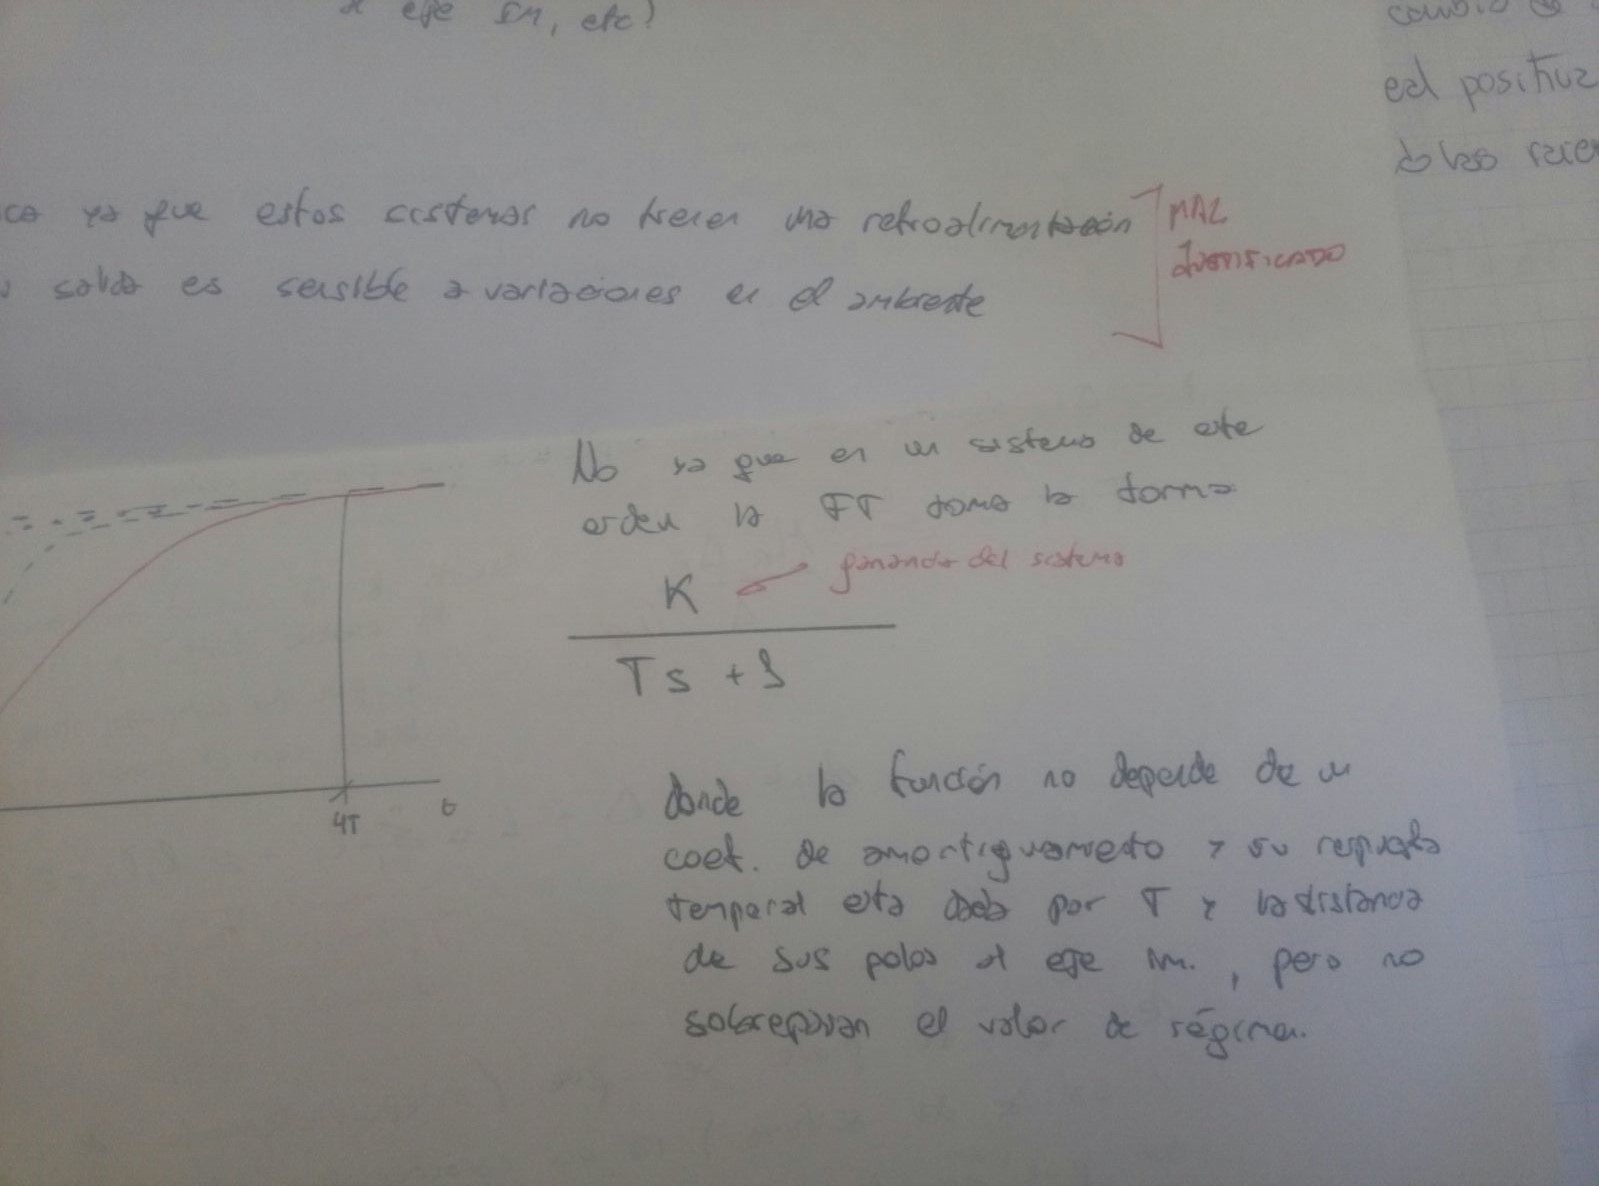 al eje Im, etc)
cambio
eal positiva
ca ya que estos sistemas no tienen una retroalimentación
MAL
JUSTIFICADO
salida es sensible a variaciones en el ambiente
No ya que en un sistema de este
orden la FT toma la forma
K
ganancia del sistema
Ts + 1
4T
t
donde la función no depende de un
coef. de amortiguamiento y su respuesta
temporal esta dada por T y la distancia
de sus polos al eje Im., pero no
sobrepasan el valor de régimen.